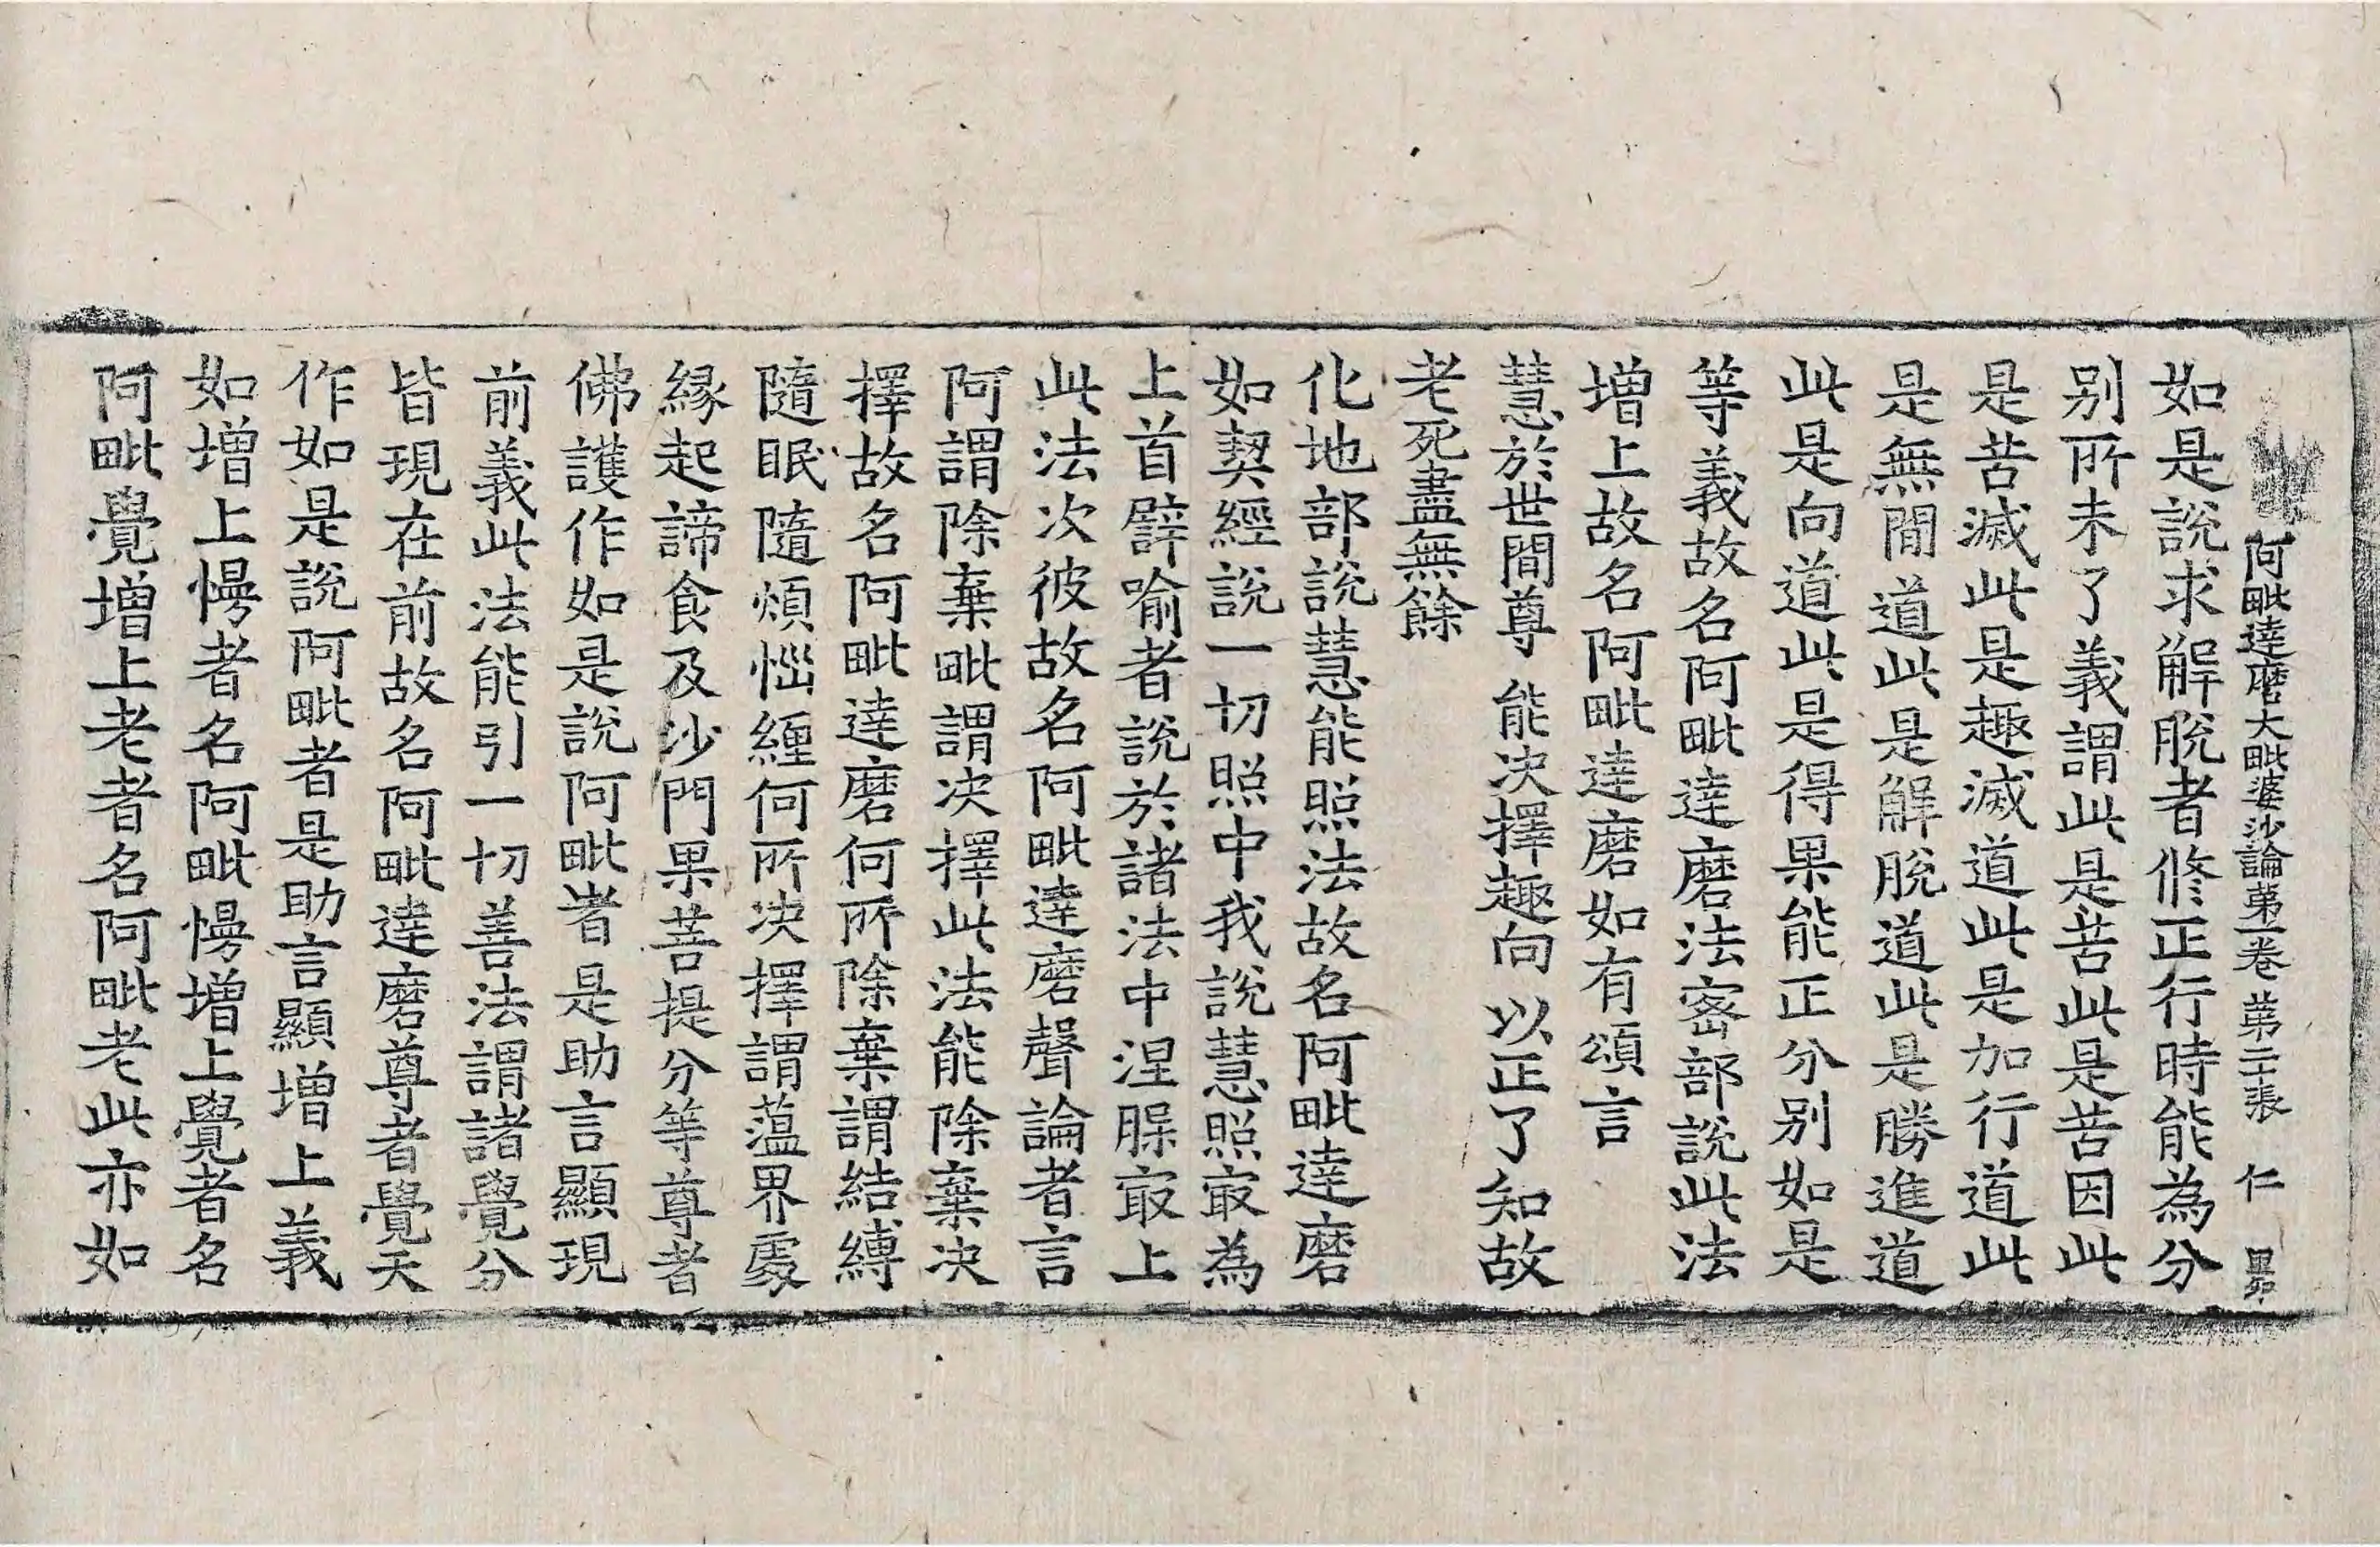 阿毗達磨大毗婆沙論第一卷 第二張 仁
如是說求解脫者修正行時能為分
別所未了義謂此是苦此是苦因此
是苦滅此是趣滅道此是加行道此
是無間道此是解脫道此是勝進道
此是向道此是得果能正分別如是
等義故名阿毗達磨法密部說此法
增上故名阿毗達磨如有頌言
慧於世間尊 能决擇趣向 以正了知故
老死盡無餘
化地部說慧能照法故名阿毗達磨
如契經說一切照中我說慧照㝡為
上首譬喻者說於諸法中涅槃㝡上
此法次彼故名阿毗達磨聲論者言
阿謂除棄毗謂决擇此法能除棄决
擇故名阿毗達磨何所除棄謂結縛
隨眠隨煩惱纏何所决擇謂蘊界處
緣起諦食及沙門果菩提分等尊者
佛護作如是說阿毗者是助言顯現
前義此法能引一切善法謂諸覺分
皆現在前故名阿毗達磨尊者覺天
作如是說阿毗者是助言顯增上義
如增上慢者名阿毗慢增上覺者名
阿毗覺增上老者名阿毗老此亦如